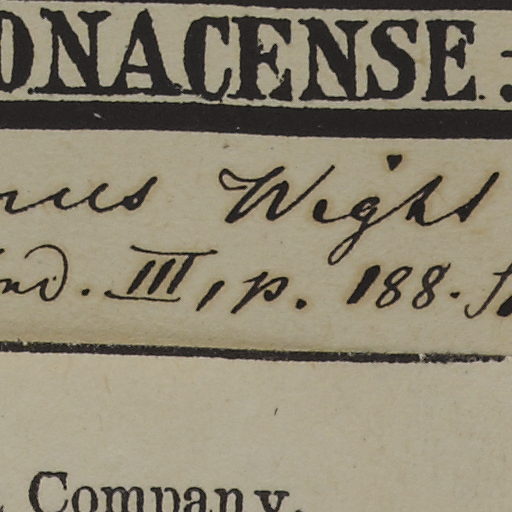 ONACENSE:
Wight
Ind. III, p. 188.
Company.